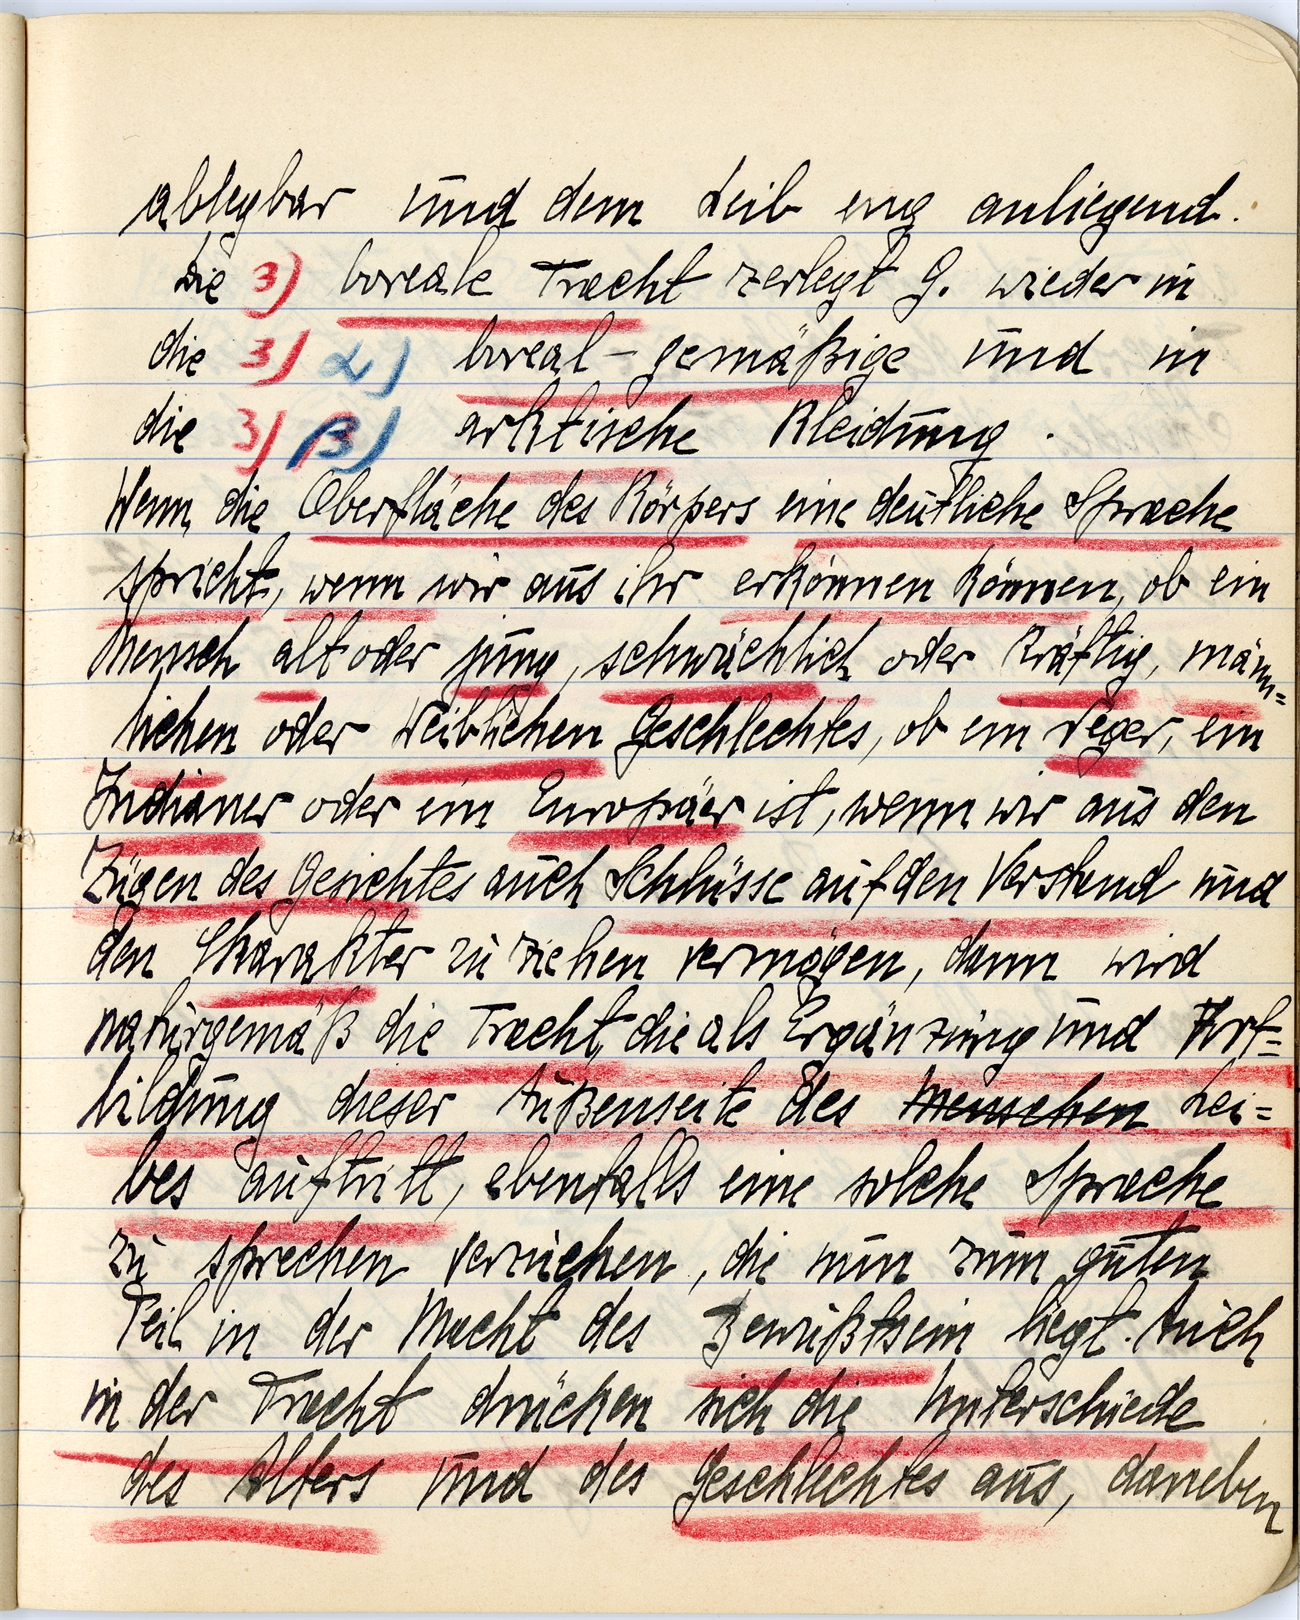 ablegbar und dem Leib eng anliegend.
Die 3) boreale Tracht zerlegt G. wieder in
die 3) α) boreal-gemäßige und in
die 3) β) arktische Kleidung.
Wenn die Oberfläche des Körpers eine deutliche Sprache
spricht, wenn wir aus ihr erkönnen können, ob ein
Mensch alt oder jung, schwächlich oder kräftig, männ=
lichen oder weiblichen Geschlechtes, ob ein Neger, ein
Indianer oder ein Europäer ist, wenn wir aus den
Zügen des Gesichtes auch Schlüsse auf den Verstand und
den Charakter zu ziehen vermögen, dann wird
naturgemäß die Tracht, die als Ergänzung und Fort=
bildung dieser Außenseite des Menschen Lei=
bes auftritt, ebenfalls eine solche Sprache
zu sprechen versuchen, die nun zum guten
Teil in der Macht des Bewußtsein liegt. Auch
in der Tracht drücken sich die Unterschiede
des Alters und des Geschlechtes aus, daneben